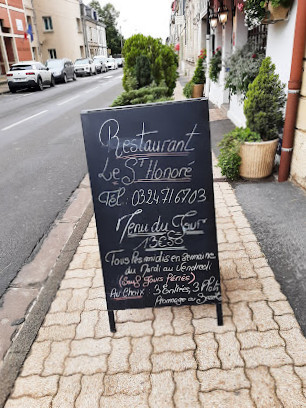 Restaurant
Le St Honoré
Tél. 0324716703
Menu du Jour
13€50
Tous les midis en semaine
du Mardi au Vendredi
(Sauf Jours Fériés)
Au Choix 3 Entrées, 3 Plats
Fromage ou